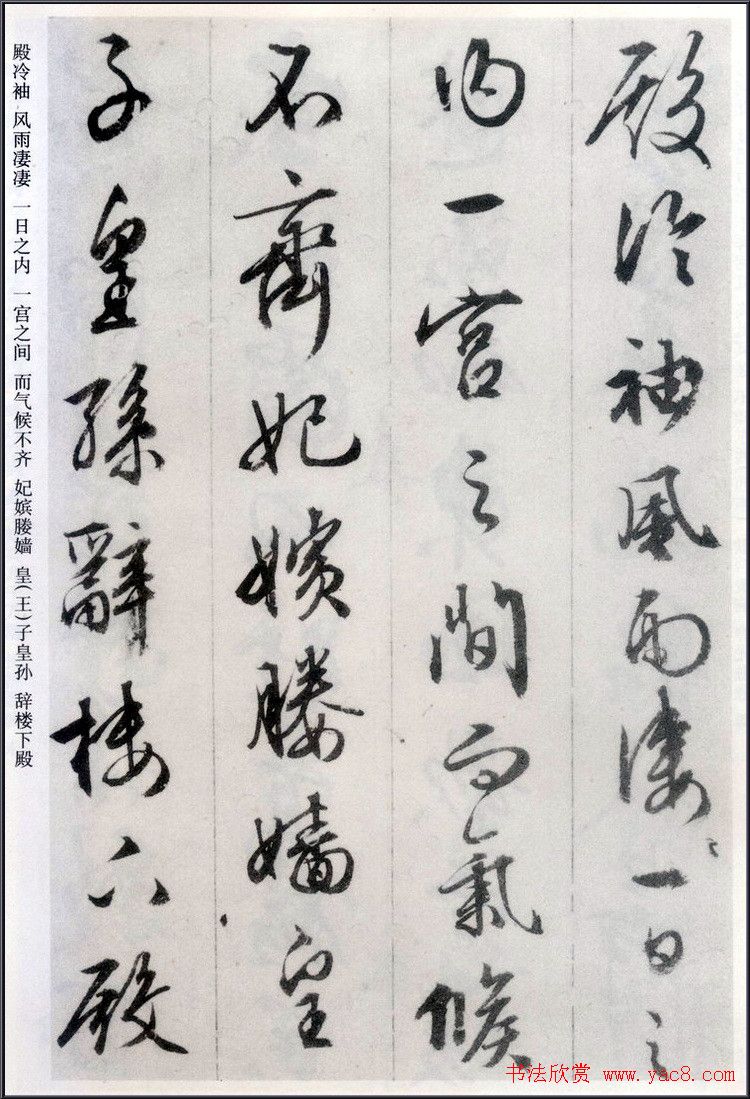 殿冷袖風雨淒〻一日之
内一宮之間而氣候
不齊妃嬪媵嬙皇
子皇孫辭樓下殿
殿冷袖 风雨凄凄 一日之内 一宫之间 而气候不齐 妃嫔媵嫱 皇(王)子皇孙 辞楼下殿
书法欣赏 www.yac8.com